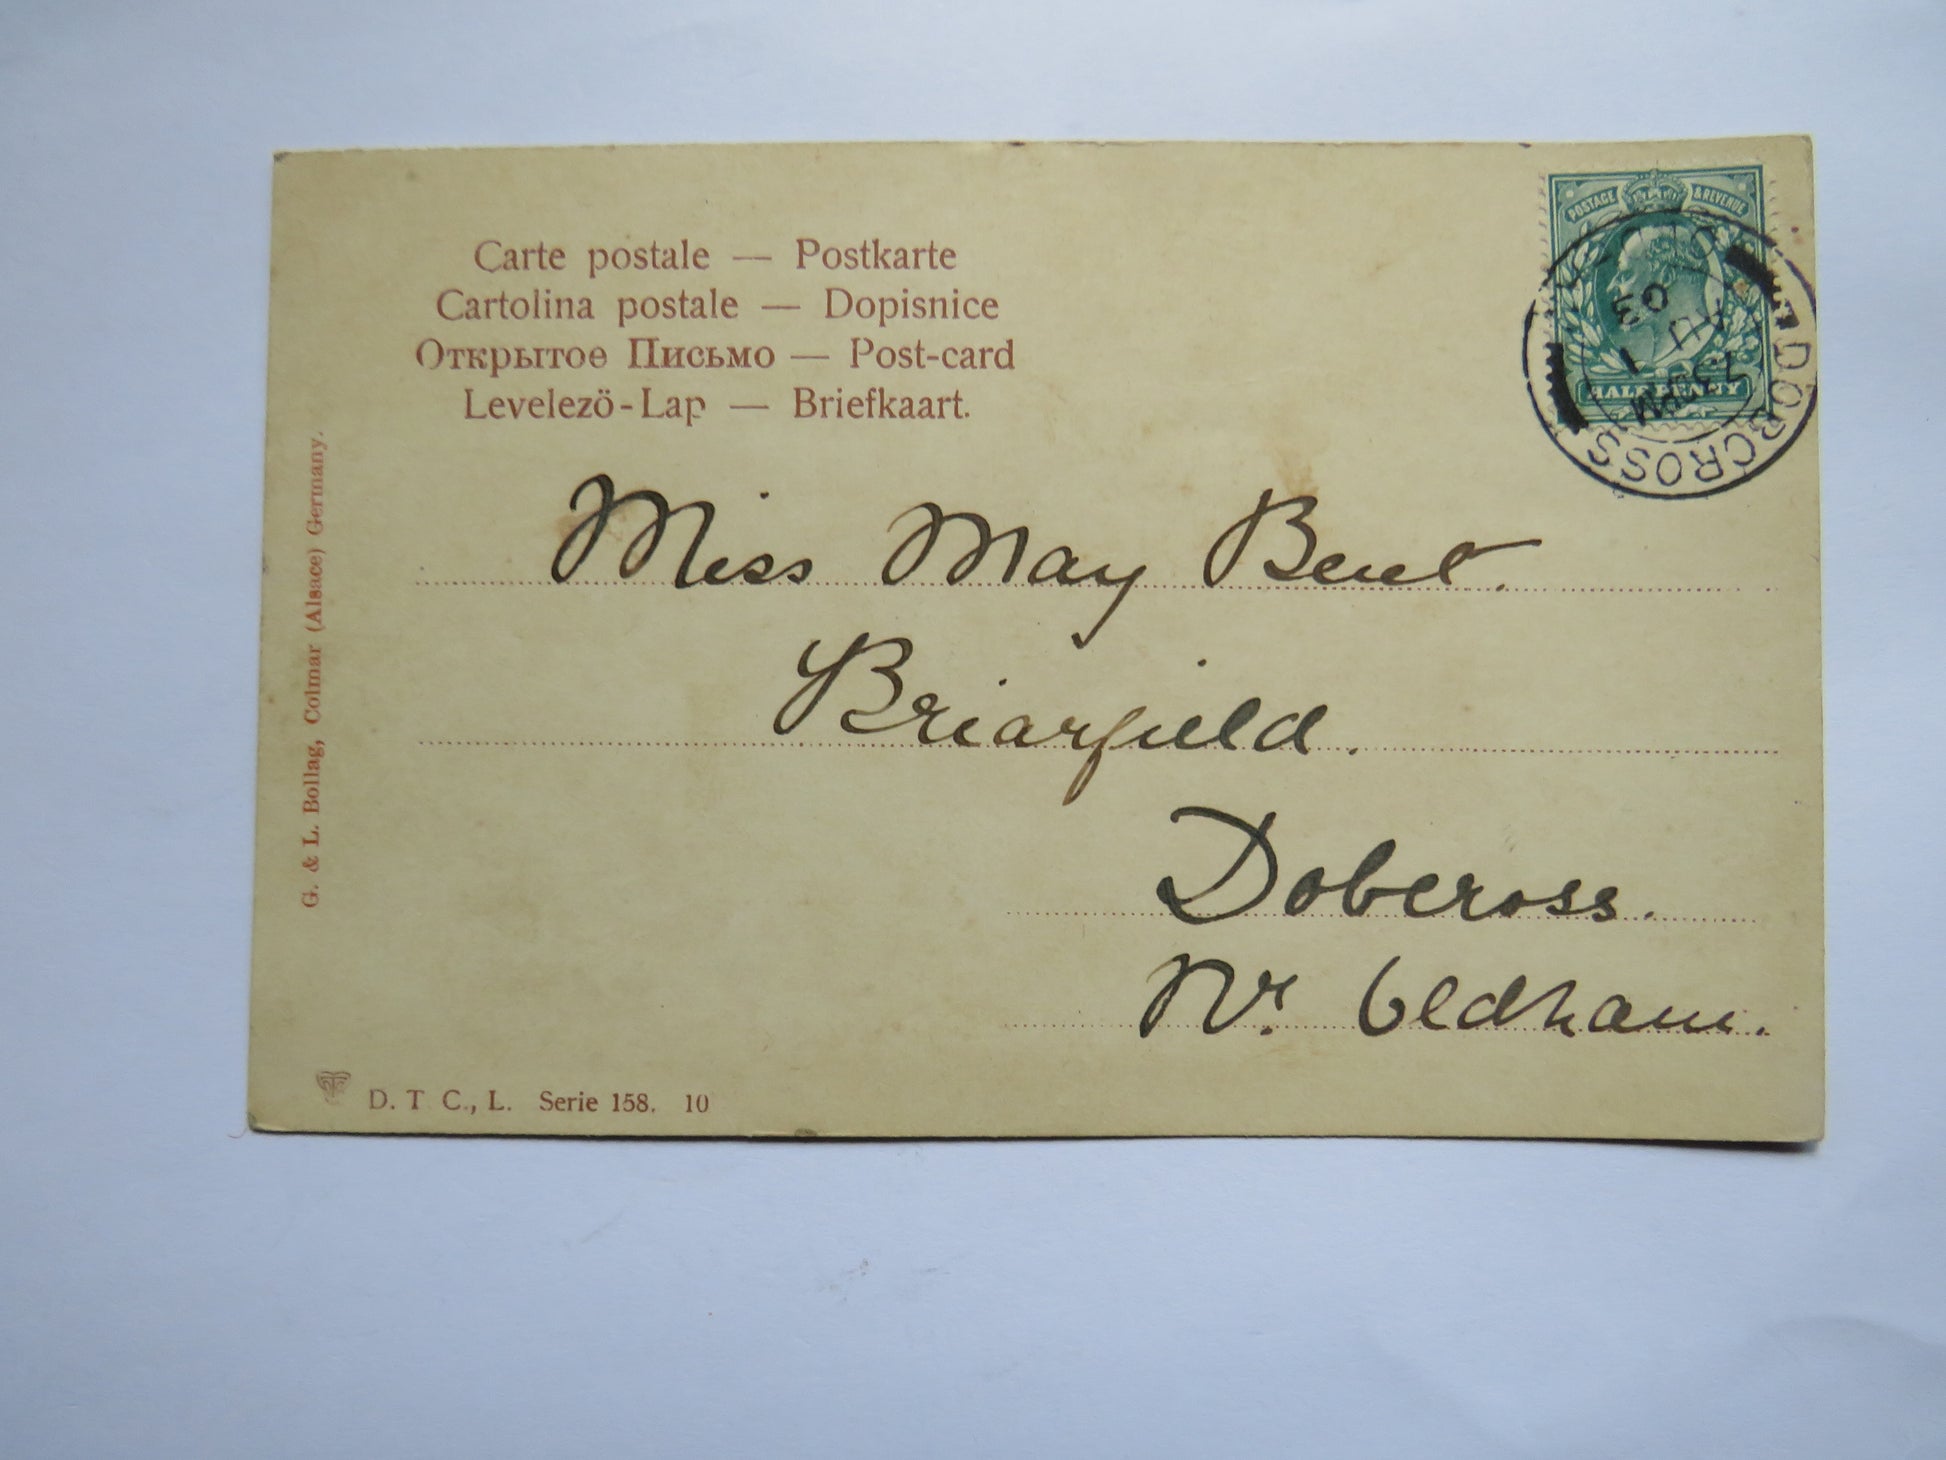 Carte postale — Postkarte
Cartolina postale — Dopisnice
Открытое Письмо — Post-card
Levelezö-Lap — Briefkaart.
POSTAGE & REVENUE
HALFPENNY
DOBCROSS
7 30 PM
AU 1
03
Miss May Bent.
Briarfield.
Dobcross.
Nr. Oldham.
G. & L. Bollag, Colmar (Alsace) Germany.
D. T C., L. Serie 158. 10